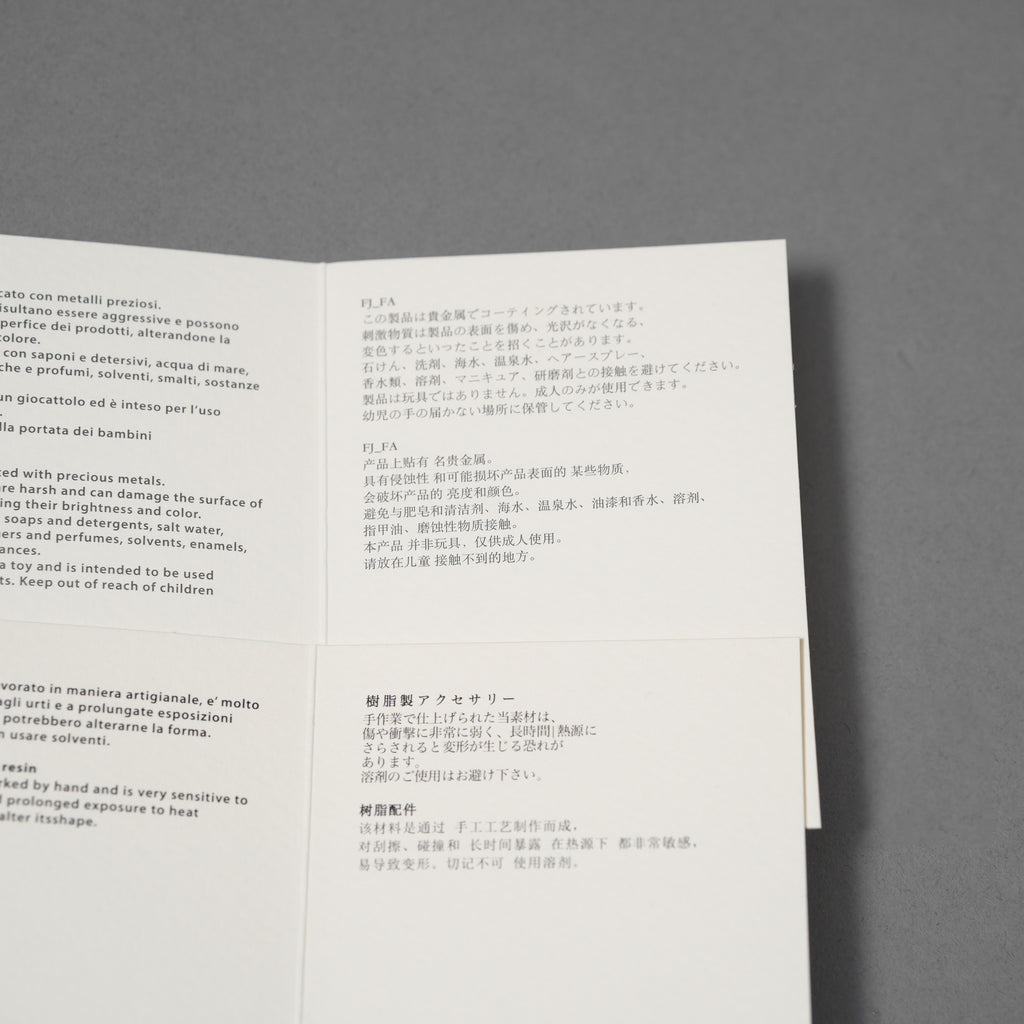 cato con metalli preziosi.
isultano essere aggressive e possono
perfice dei prodotti, alterandone la
colore.
con saponi e detersivi, acqua di mare,
che e profumi, solventi, smalti, sostanze
un giocattolo ed è inteso per l'uso
.
lla portata dei bambini
ted with precious metals.
re harsh and can damage the surface of
ing their brightness and color.
soaps and detergents, salt water,
ers and perfumes, solvents, enamels,
ances.
a toy and is intended to be used
ts. Keep out of reach of children
FJ_FA
この製品は貴金属でコーティングされています。
刺激物質は製品の表面を傷め、光沢がなくなる、
変色するといったことを招くことがあります。
石けん、洗剤、海水、温泉水、ヘアースプレー、
香水類、溶剤、マニキュア、研磨剤との接触を避けてください。
製品は玩具ではありません。成人のみが使用できます。
幼児の手の届かない場所に保管してください。
FJ_FA
产品上贴有 名贵金属。
具有侵蚀性 和可能损坏产品表面的 某些物质、
会破坏产品的 亮度和颜色。
避免与肥皂和清洁剂、海水、温泉水、油漆和香水、溶剂、
指甲油、磨蚀性物质接触。
本产品 并非玩具、仅供成人使用。
请放在儿童 接触不到的地方。
vorato in maniera artigianale, e' molto
agli urti e a prolungate esposizioni
potrebbero alterarne la forma.
n usare solventi.
resin
rked by hand and is very sensitive to
l prolonged exposure to heat
alter itsshape.
樹脂製アクセサリー
手作業で仕上げられた当素材は、
傷や衝撃に非常に弱く、長時間|熱源に
さらされると変形が生じる恐れが
あります。
溶剤のご使用はお避け下さい。
树脂配件
该材料是通过 手工工艺制作而成，
对刮擦、碰撞和 长时间暴露 在热源下 都非常敏感，
易导致变形、切记不可 使用溶剂。